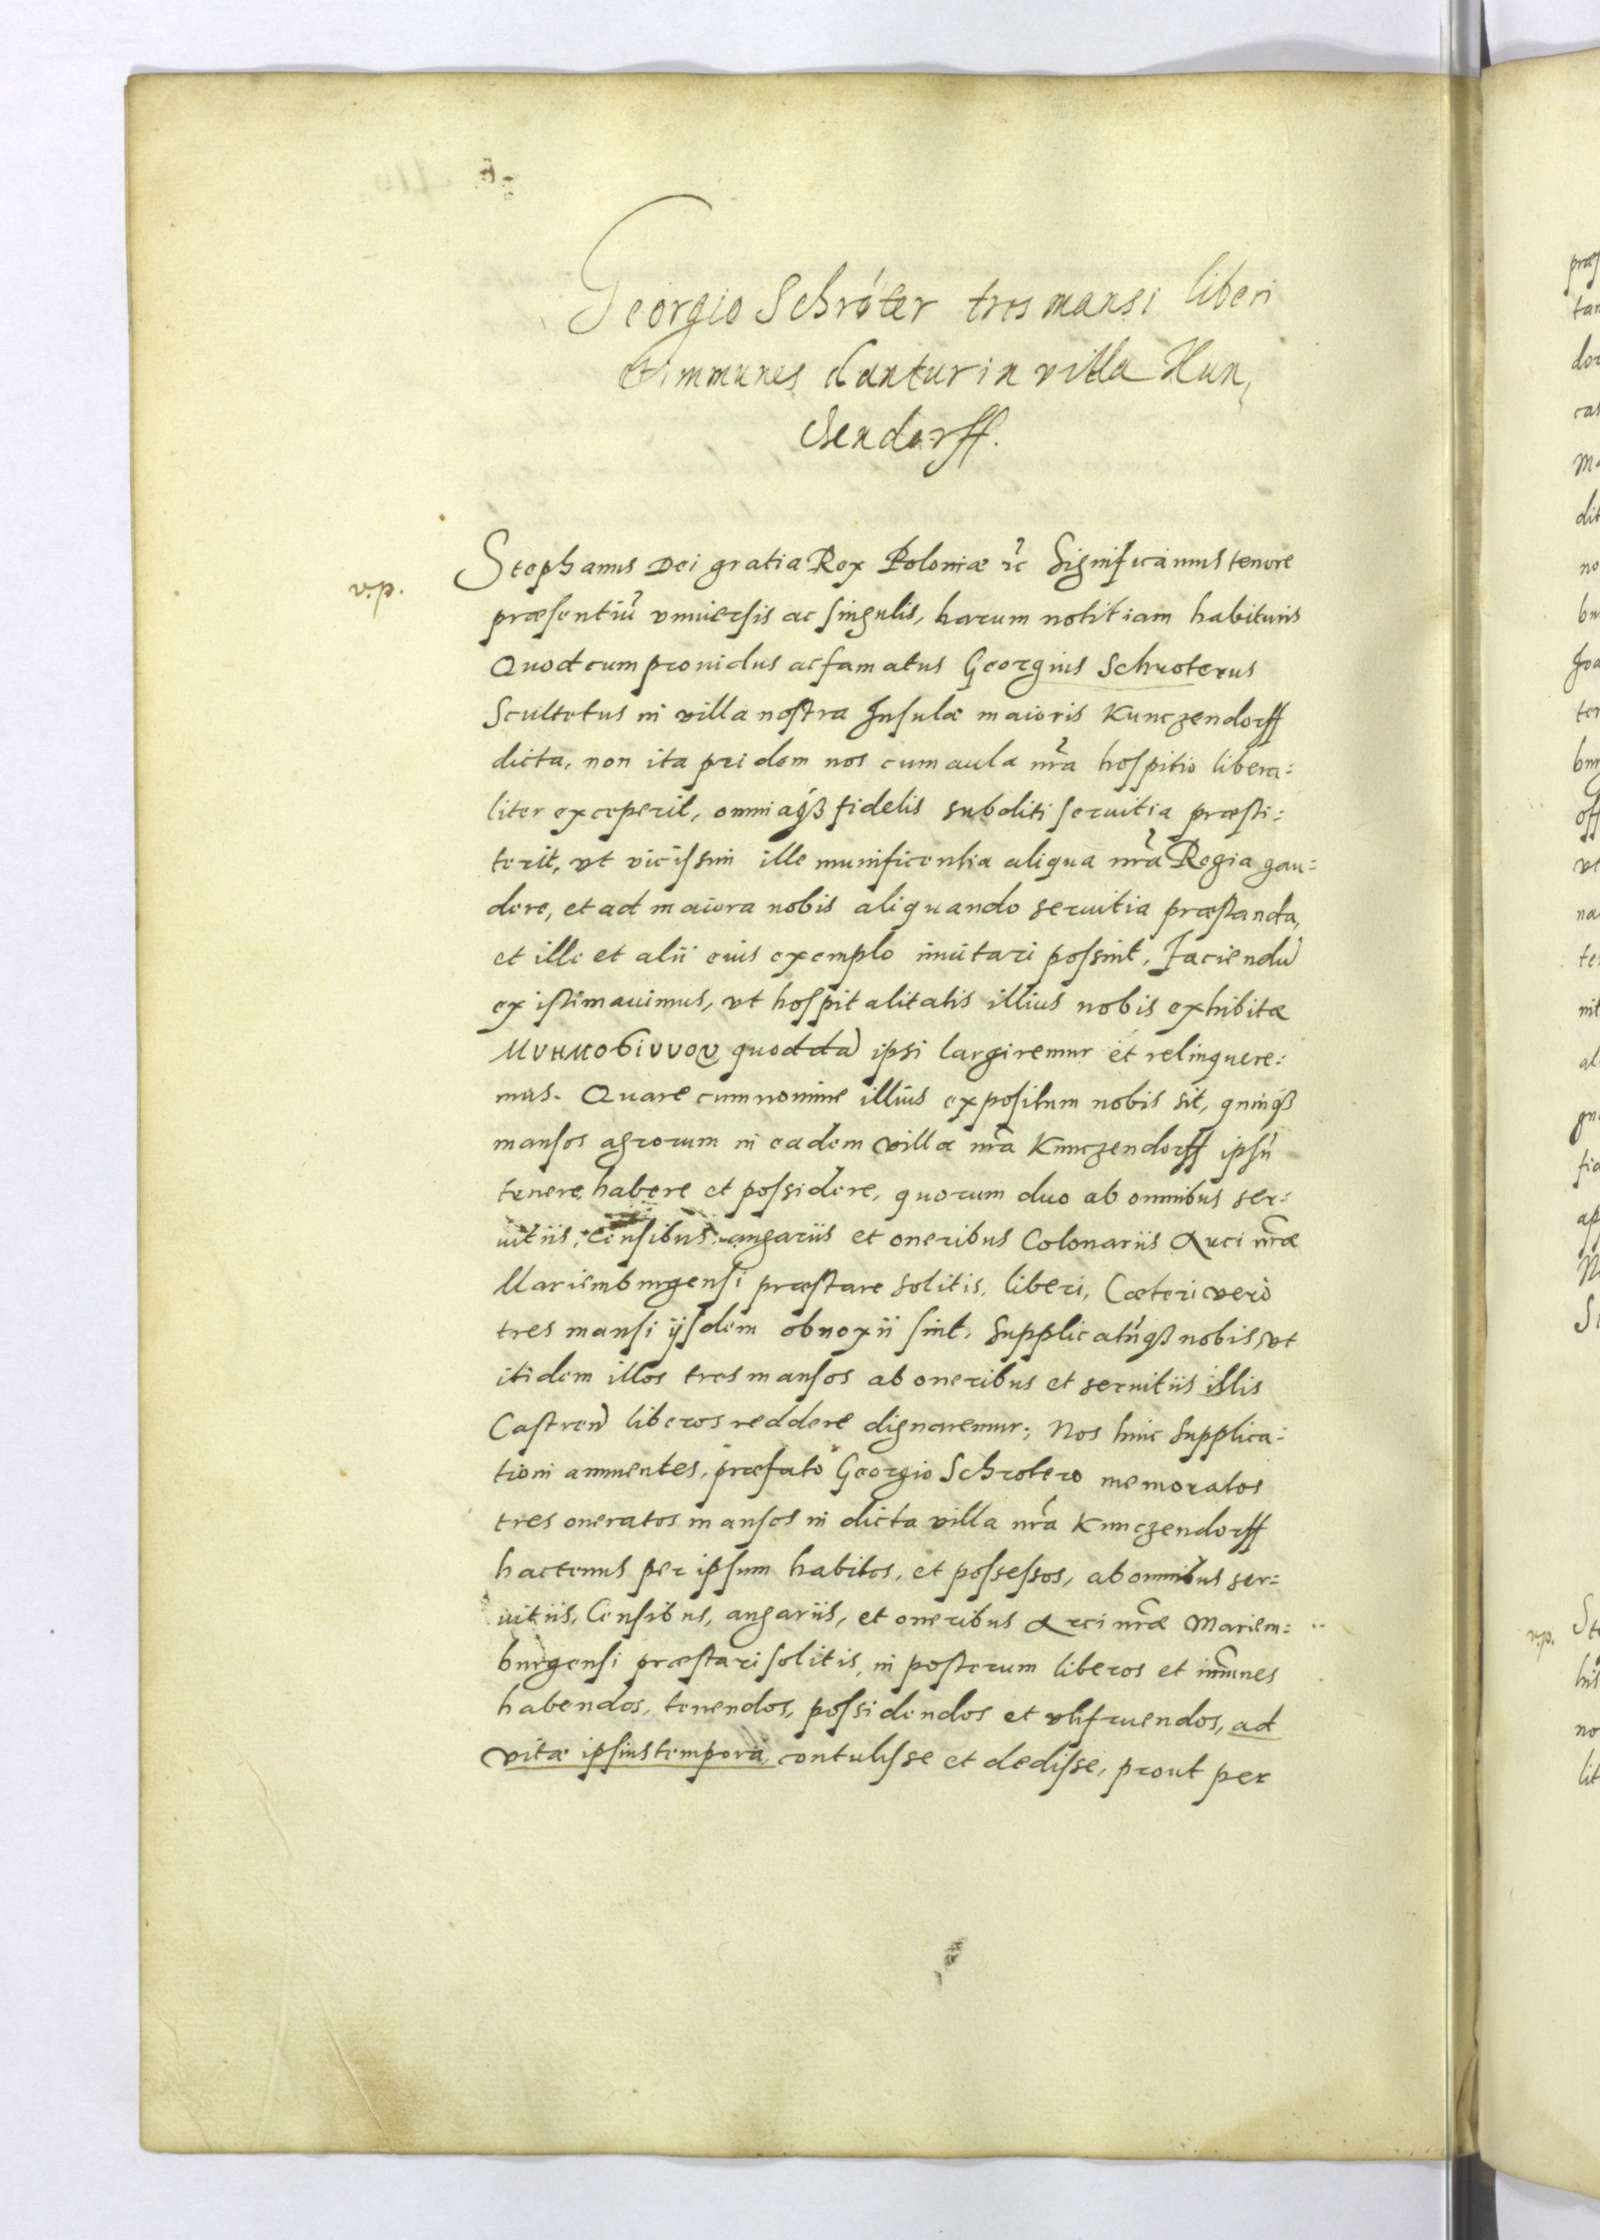 Georgio Schróter tres mansi liberi
et immunes dantur in villa Kun,
czendorff.
v.p.
Stephanus Dei gratia Rex Poloniæ etc Significamus tenore
præsentiũ vniuersis ac singulis, harum notitiam habituris
Quod cum prouidus ac famatus Georgius Schroterus
Scultetus in villa nostra Insulæ maioris Kunczendorff
dicta, non ita pridem nos cum aula nr̃a hospitio libera:
liter exceperit, omniaqʒ fidelis subditi seruitia præsti:
terit, vt vicissim ille munificentia aliqua nr̃a Regia gau:
dere, et ad maiora nobis aliquando seruitia præstanda,
et ille et alii eius exemplo inuitari possint, Faciendũ
existimauimus, vt hospitalitatis illius nobis exhibitæ
μνημόσυνον quoddã ipsi largiremur et relinquere:
mus. Quare cum nomine illius expositum nobis sit, quinqʒ
mansos agrorum in eadem villa nr̃a Kunczendorff ipsũ
tenere, habere et possidere, quorum duo ab omnibus ser:
uitiis, Censibus, angariis et oneribus Colonariis Arci nr̃æ
Mariemburgensi præstare solitis, liberi, Cæteri verò
tres mansi ijsdem obnoxii sint, supplicatũqʒ nobis, vt
itidem illos tres mansos ab oneribus et seruitiis illis
Castren̄ liberos reddere dignaremur; Nos huic supplica:
tioni annuentes, præfato Georgio Schrotero memoratos
tres oneratos mansos in dicta villa nr̃a Kunczendorff
hactenus per ipsum habitos, et possessos, ab omnibus ser:
uitiis, Censibus, angariis, et oneribus Arci nr̃æ Mariem:
burgensi præstari solitis, in posterum liberos et im̃unes
habendos, tenendos, possidendos et vtifruendos, ad
vitæ ipsius tempora, contulisse et dedisse, prout per